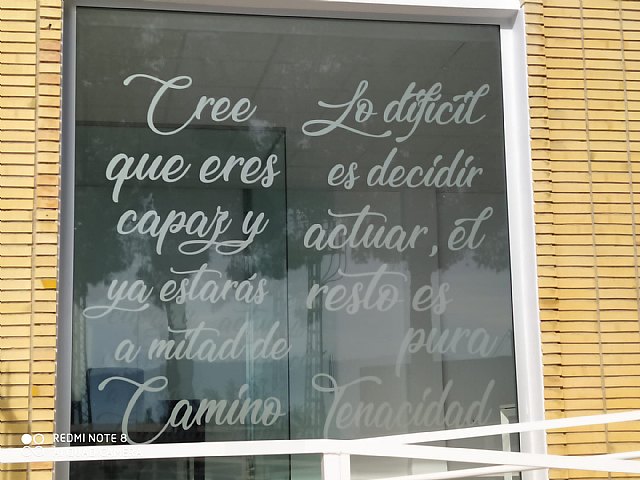 Cree
que eres
capaz y
ya estarás
a mitad de
Camino
Lo difícil
es decidir
actuar, él
resto es
pura
Tenacidad
REDMI NOTE 8